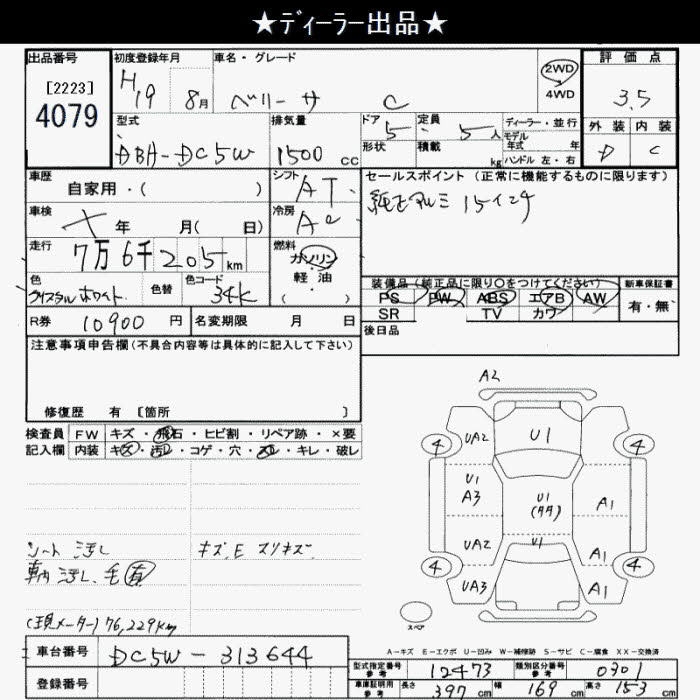 ★ディーラー出品★
出品番号
[2223]
4079
初度登録年月
H19 8月
車名・グレード
ベリーサ C
2WD
4WD
評価点
3.5
外装 内装
D C
型式
DBA-DC5W
排気量
1500 cc
ドア 5
形状
定員 5 人
積載 kg
ディーラー・並行
モデル年式 年
ハンドル 左・右
車歴
自家用・( )
シフト
AT
セールスポイント (正常に機能するものに限ります)
純正アルミ 15インチ
車検
年 月( 日)
冷房
走行
7万6千205km
燃料
ガソリン
軽・油
・( )
色
クリスタルホワイト
色替
色コード
34K
装備品(純正品に限り○をつけてください)
新車保証書
PS PW ABS エアB AW
有・無
SR TV カワ
R券 10900 円
名変期限 月 日
後日品
注意事項申告欄(不具合内容等は具体的に記入して下さい)
修復歴 有 [箇所 ]
検査員
記入欄
FW キズ・飛石・ヒビ割・リペア跡・×要
内装 キズ・汚レ・コゲ・穴・スレ・キレ・破レ
シート 汚レ
キズ、E スリキズ
車内 汚レ、毛有
(現メーター)76,229km
A2
4 UA2 U1 4
U1
A3
U1
A1
UA2 U1 A1
4 UA3 A1 4
スペア
A-キズ E-エクボ U-凹み W-補修跡 S-サビ C-腐食 XX-交換済
車台番号 DC5W-313644
登録番号
型式指定番号
参考
12473
類別区分番号
参考
0301
車庫証明用
参考
長さ 397 cm 幅 169 cm 高さ 153 cm